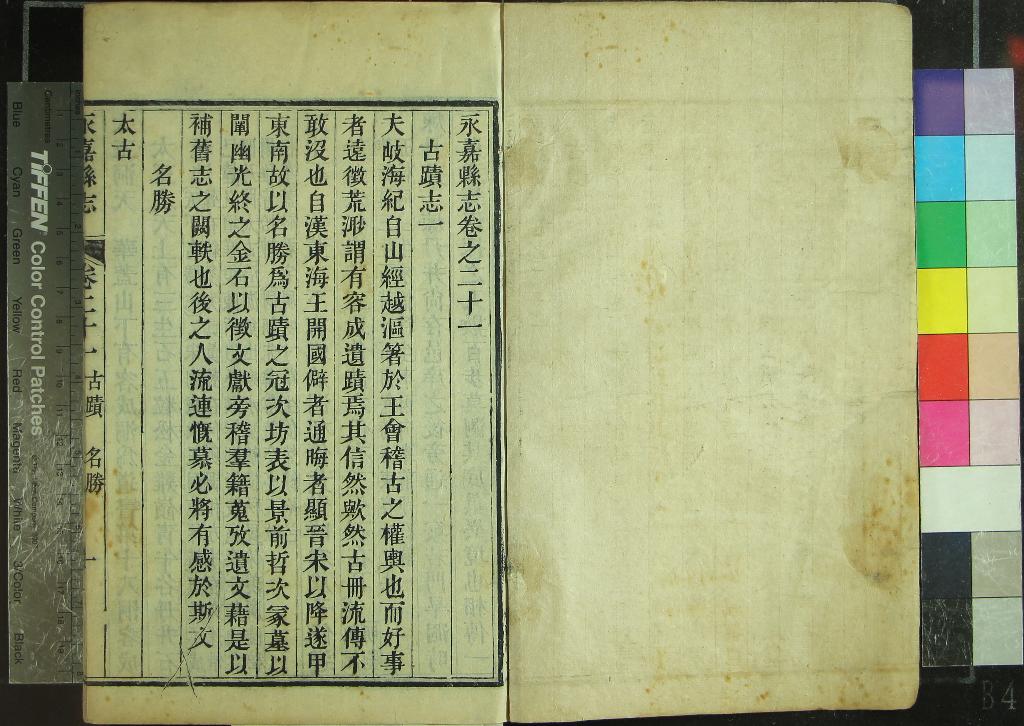 永嘉縣志卷之二十一
古蹟志一
夫岐海紀自山經越漚箸於王會稽古之權輿也而好事
者遠徵荒渺謂有容成遺蹟焉其信然歟然古冊流傳不
敢沒也自漢東海王開國僻者通晦者顯晉宋以降遂甲
東南故以名勝爲古蹟之冠次坊表以景前哲次冢墓以
闡幽光終之金石以徵文獻旁稽羣籍蒐攷遺文藉是以
補舊志之闕軼也後之人流連慨慕必將有感於斯文
名勝
太古
永嘉縣志
卷二十一 古蹟 名勝 一
Centimetres
TIFFEN Color Control Patches
Blue Cyan Green Yellow Red Magenta White 3/Color Black
B4